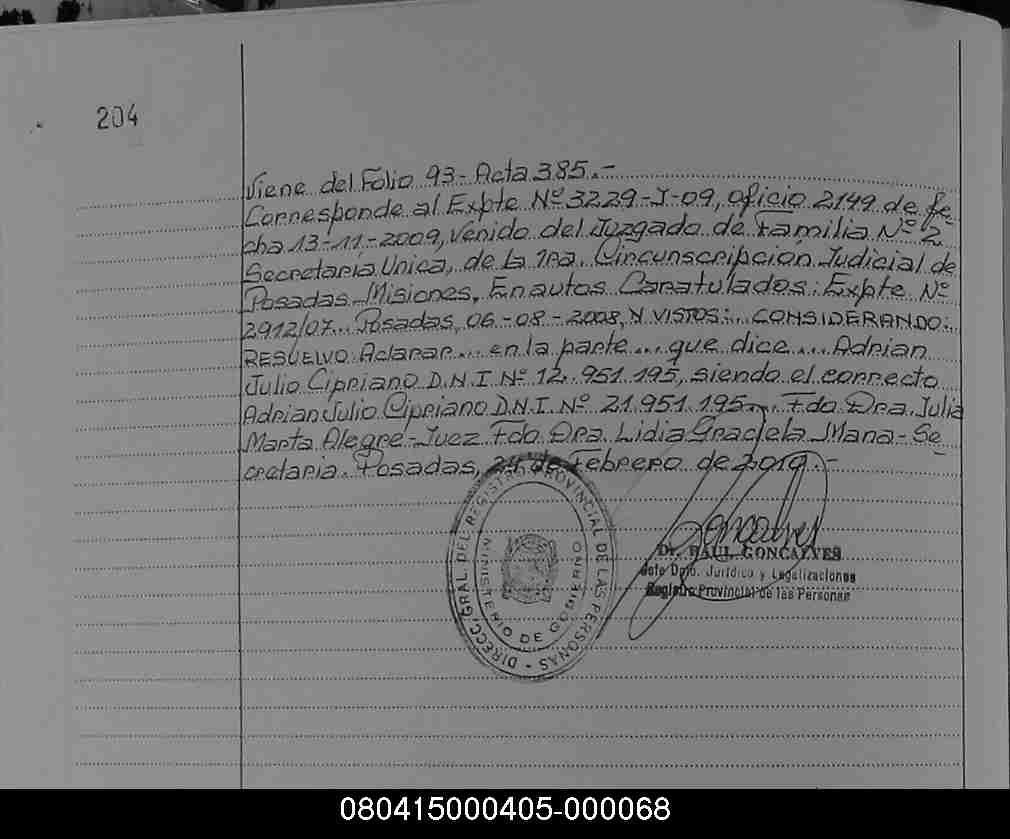 204
Viene del Folio 93- Acta 385.-
Corresponde al Expte Nº 3229-J-09, oficio 2149 de fe-
cha 13-11-2009, venido del Juzgado de Familia Nº 2
Secretaria Unica, de la 1ra. Circunscripción Judicial de
Posadas Misiones, En autos Caratulados: Expte Nº
2912/07.. Posadas, 06-08-2008, Y VISTOS:.. CONSIDERANDO:.
RESUELVO Aclarar... en la parte... que dice... Adrian
Julio Cipriano D.N.I Nº 12.951.195, siendo el correcto
Adrian Julio Cipriano D.N.I. Nº 21.951.195... Fdo Dra. Julia
Marta Alegre-Juez Fdo Dra. Lidia Graciela Mana-Se-
cretaria. Posadas, 24 de Febrero de 2010.-
DIRECC. GRAL. DEL REGISTRO PROVINCIAL DE LAS PERSONAS -
MINISTERIO DE GOBIERNO
Goncalves
Dr. RAUL GONCALVES
Jefe Dpto. Jurídico y Legalizaciones
Registro Provincial de las Personas
080415000405-000068